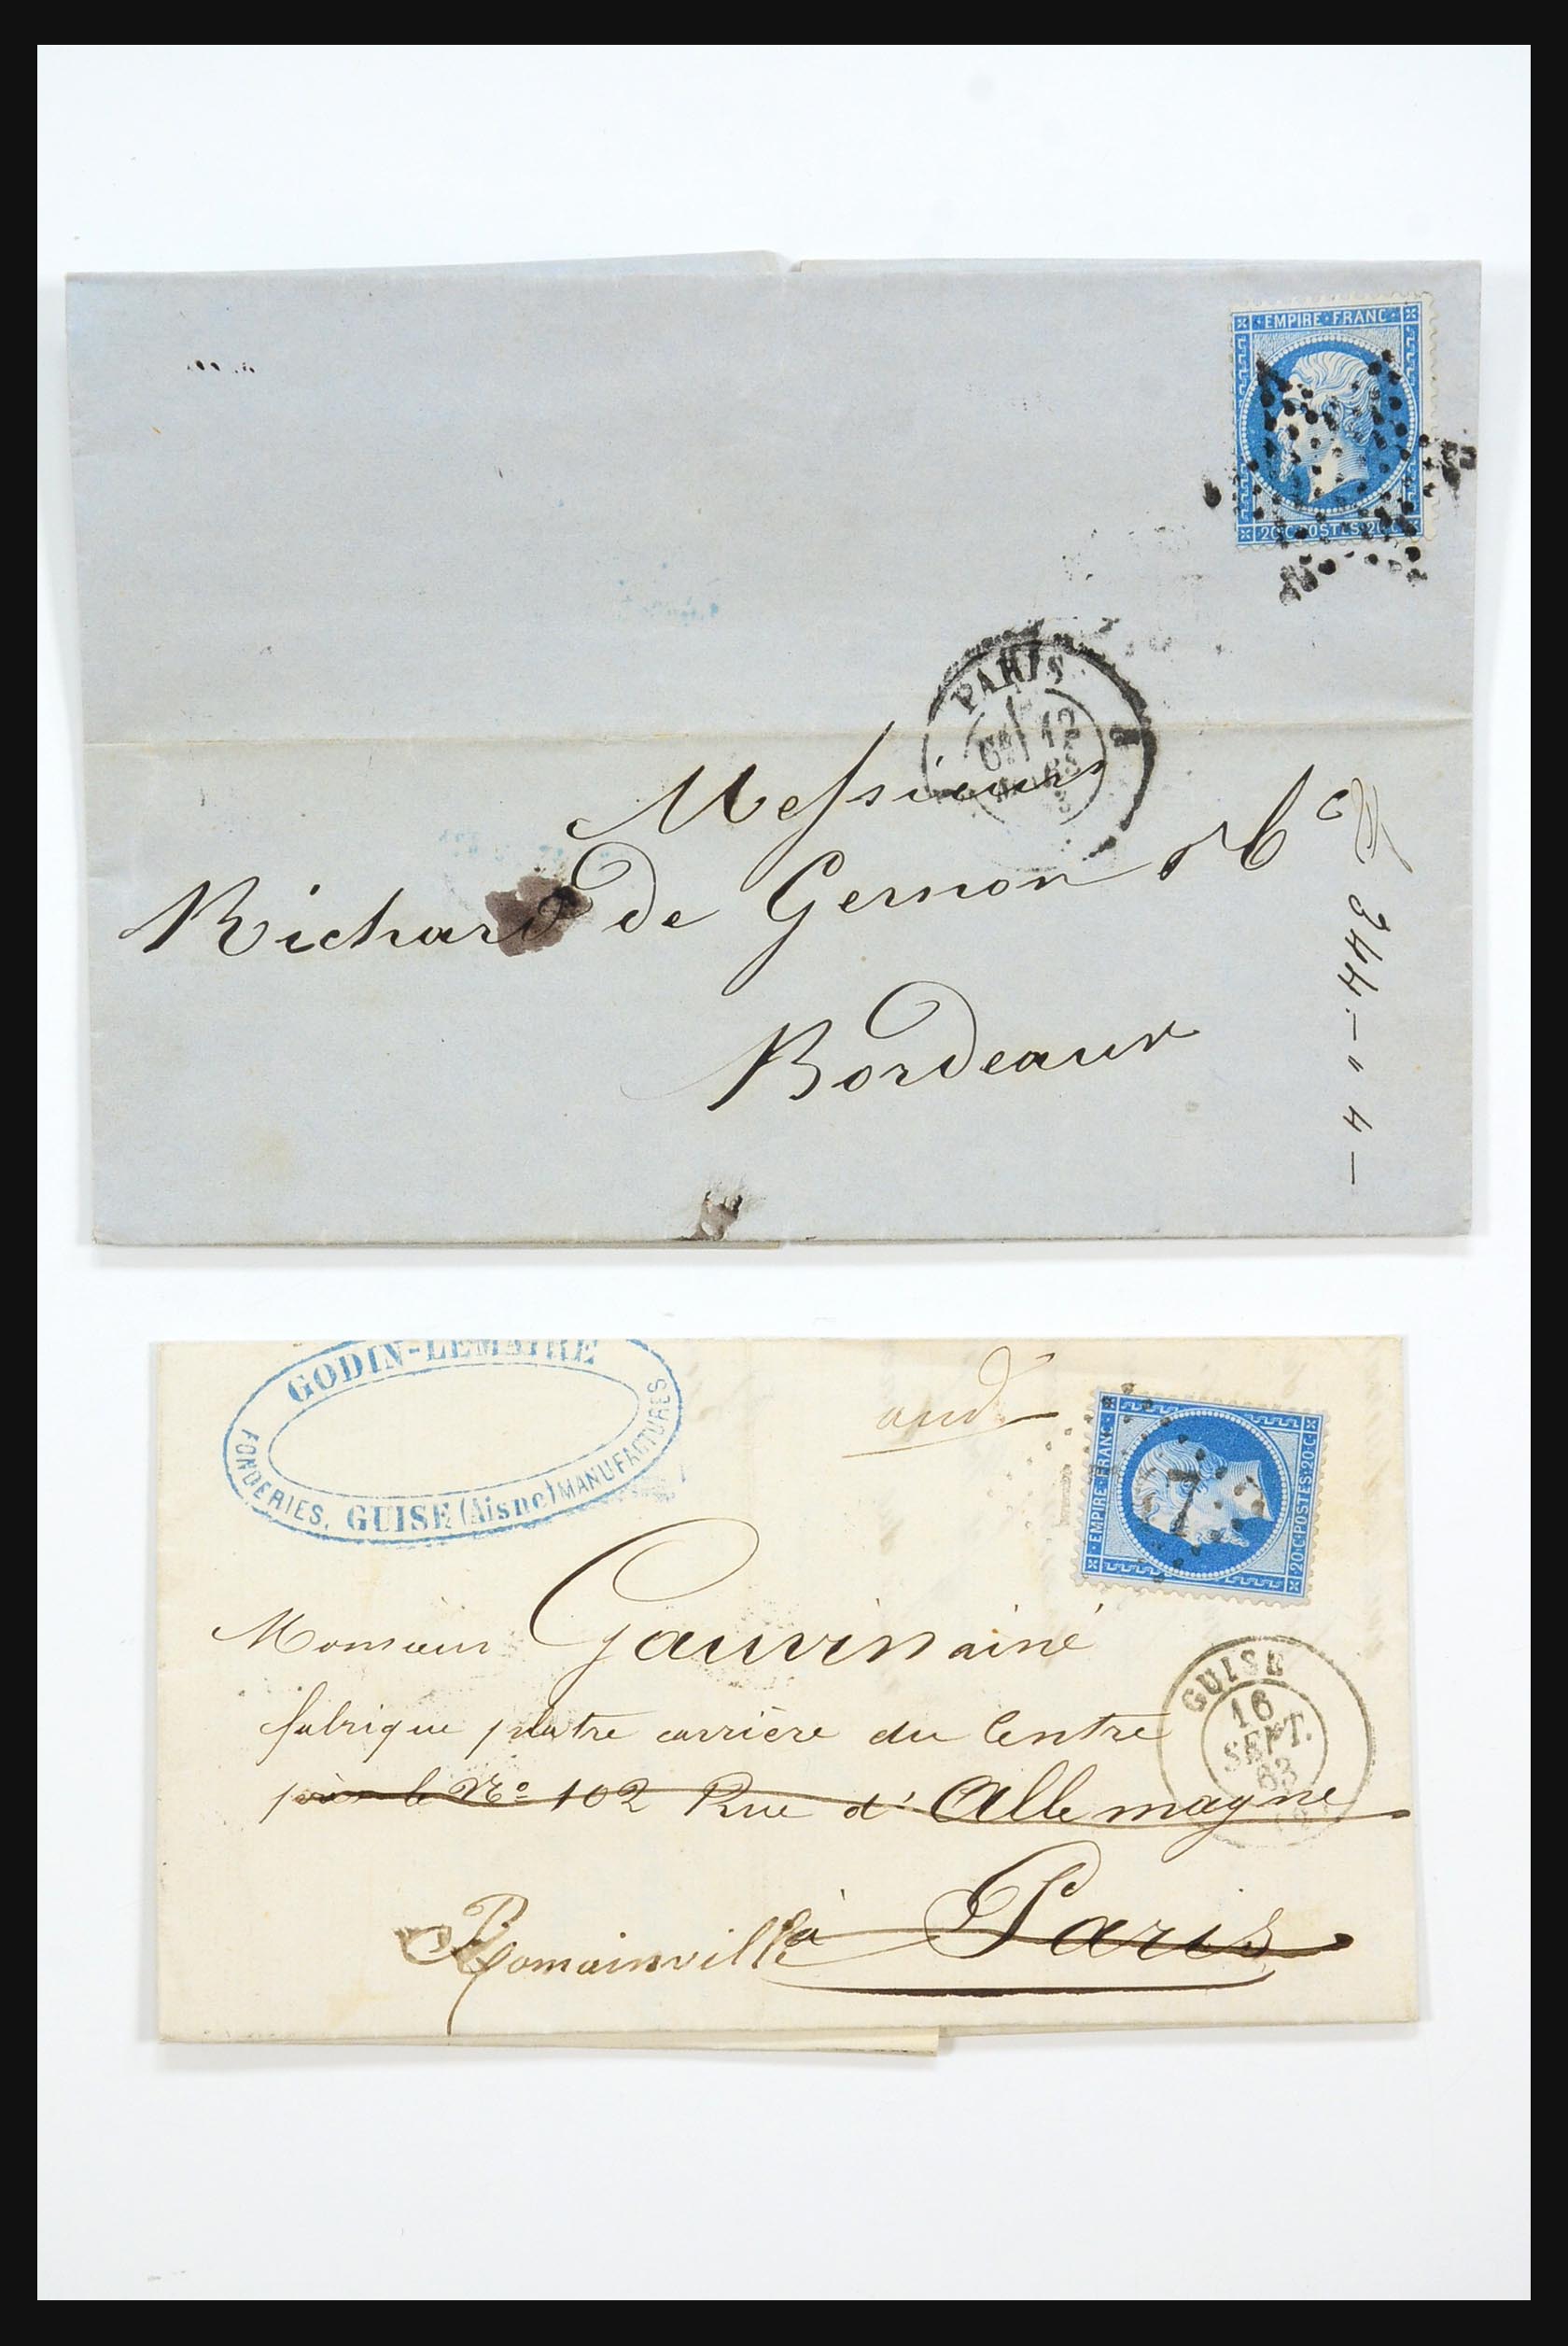 EMPIRE·FRANC·
20·C·POSTES·20·C
PARIS
12
MARS
Messieurs
Richard de Gernon & Cº
Bordeaux
344 - " - 4 -
GODIN-LEMAIRE
FONDERIES, GUISE (Aisne) MANUFACTURES
EMPIRE·FRANC·
20·C·POSTES·20·C
GUISE
16
SEPT.
63
Monsieur Gauvin ainé
fabrique platre carrière du Centre
près le Nº 102 Rue d'Allemagne
à Paris
Romainville